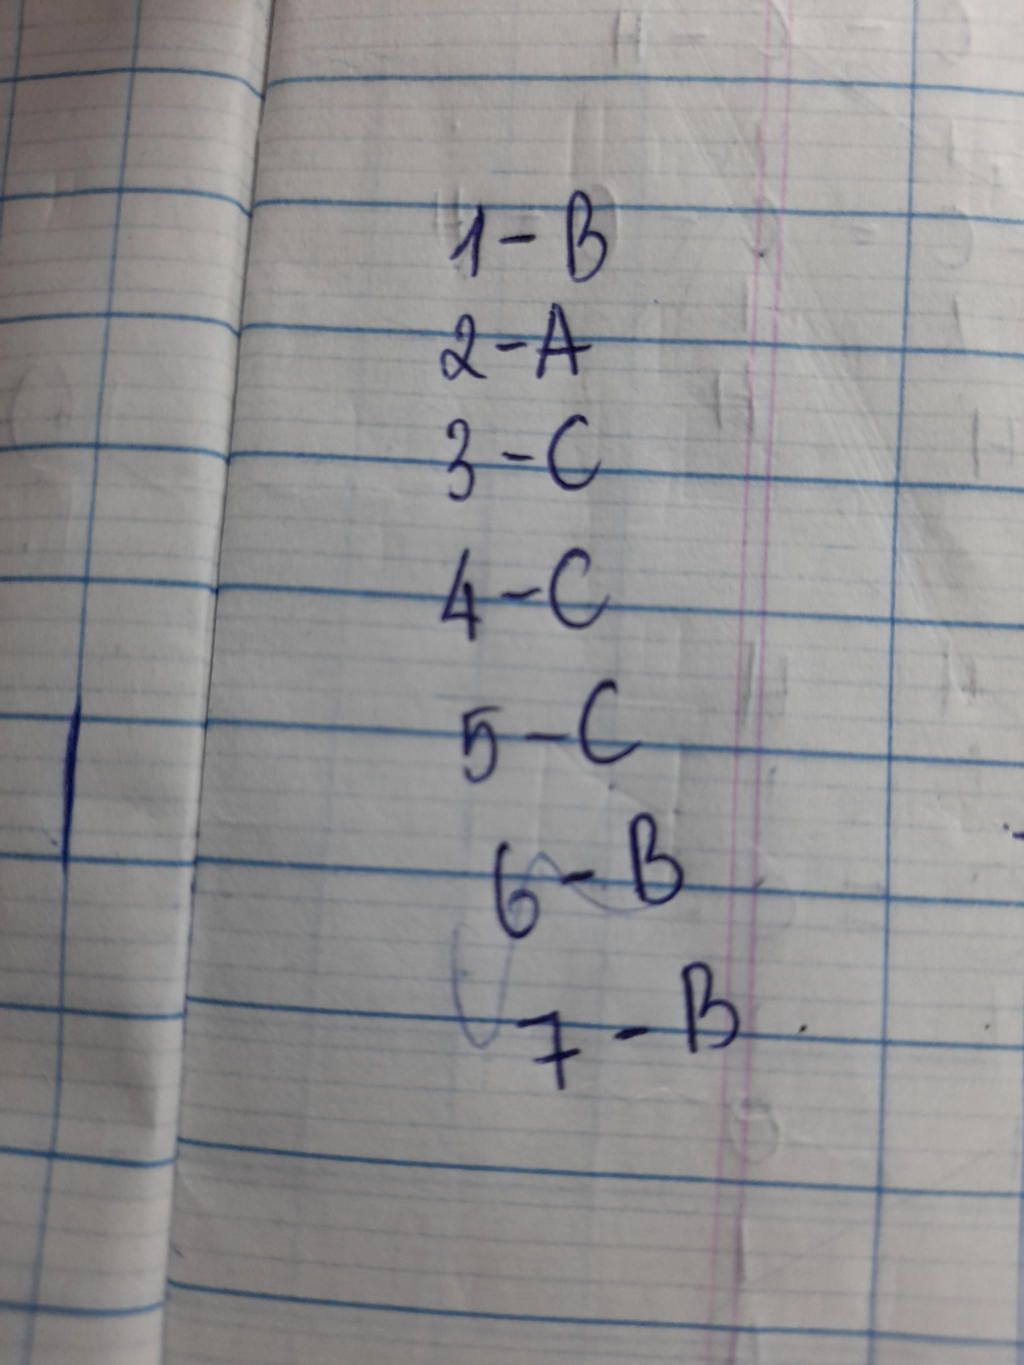 1-B
2-A
3-C
4-C
5-C
6-B
7-B